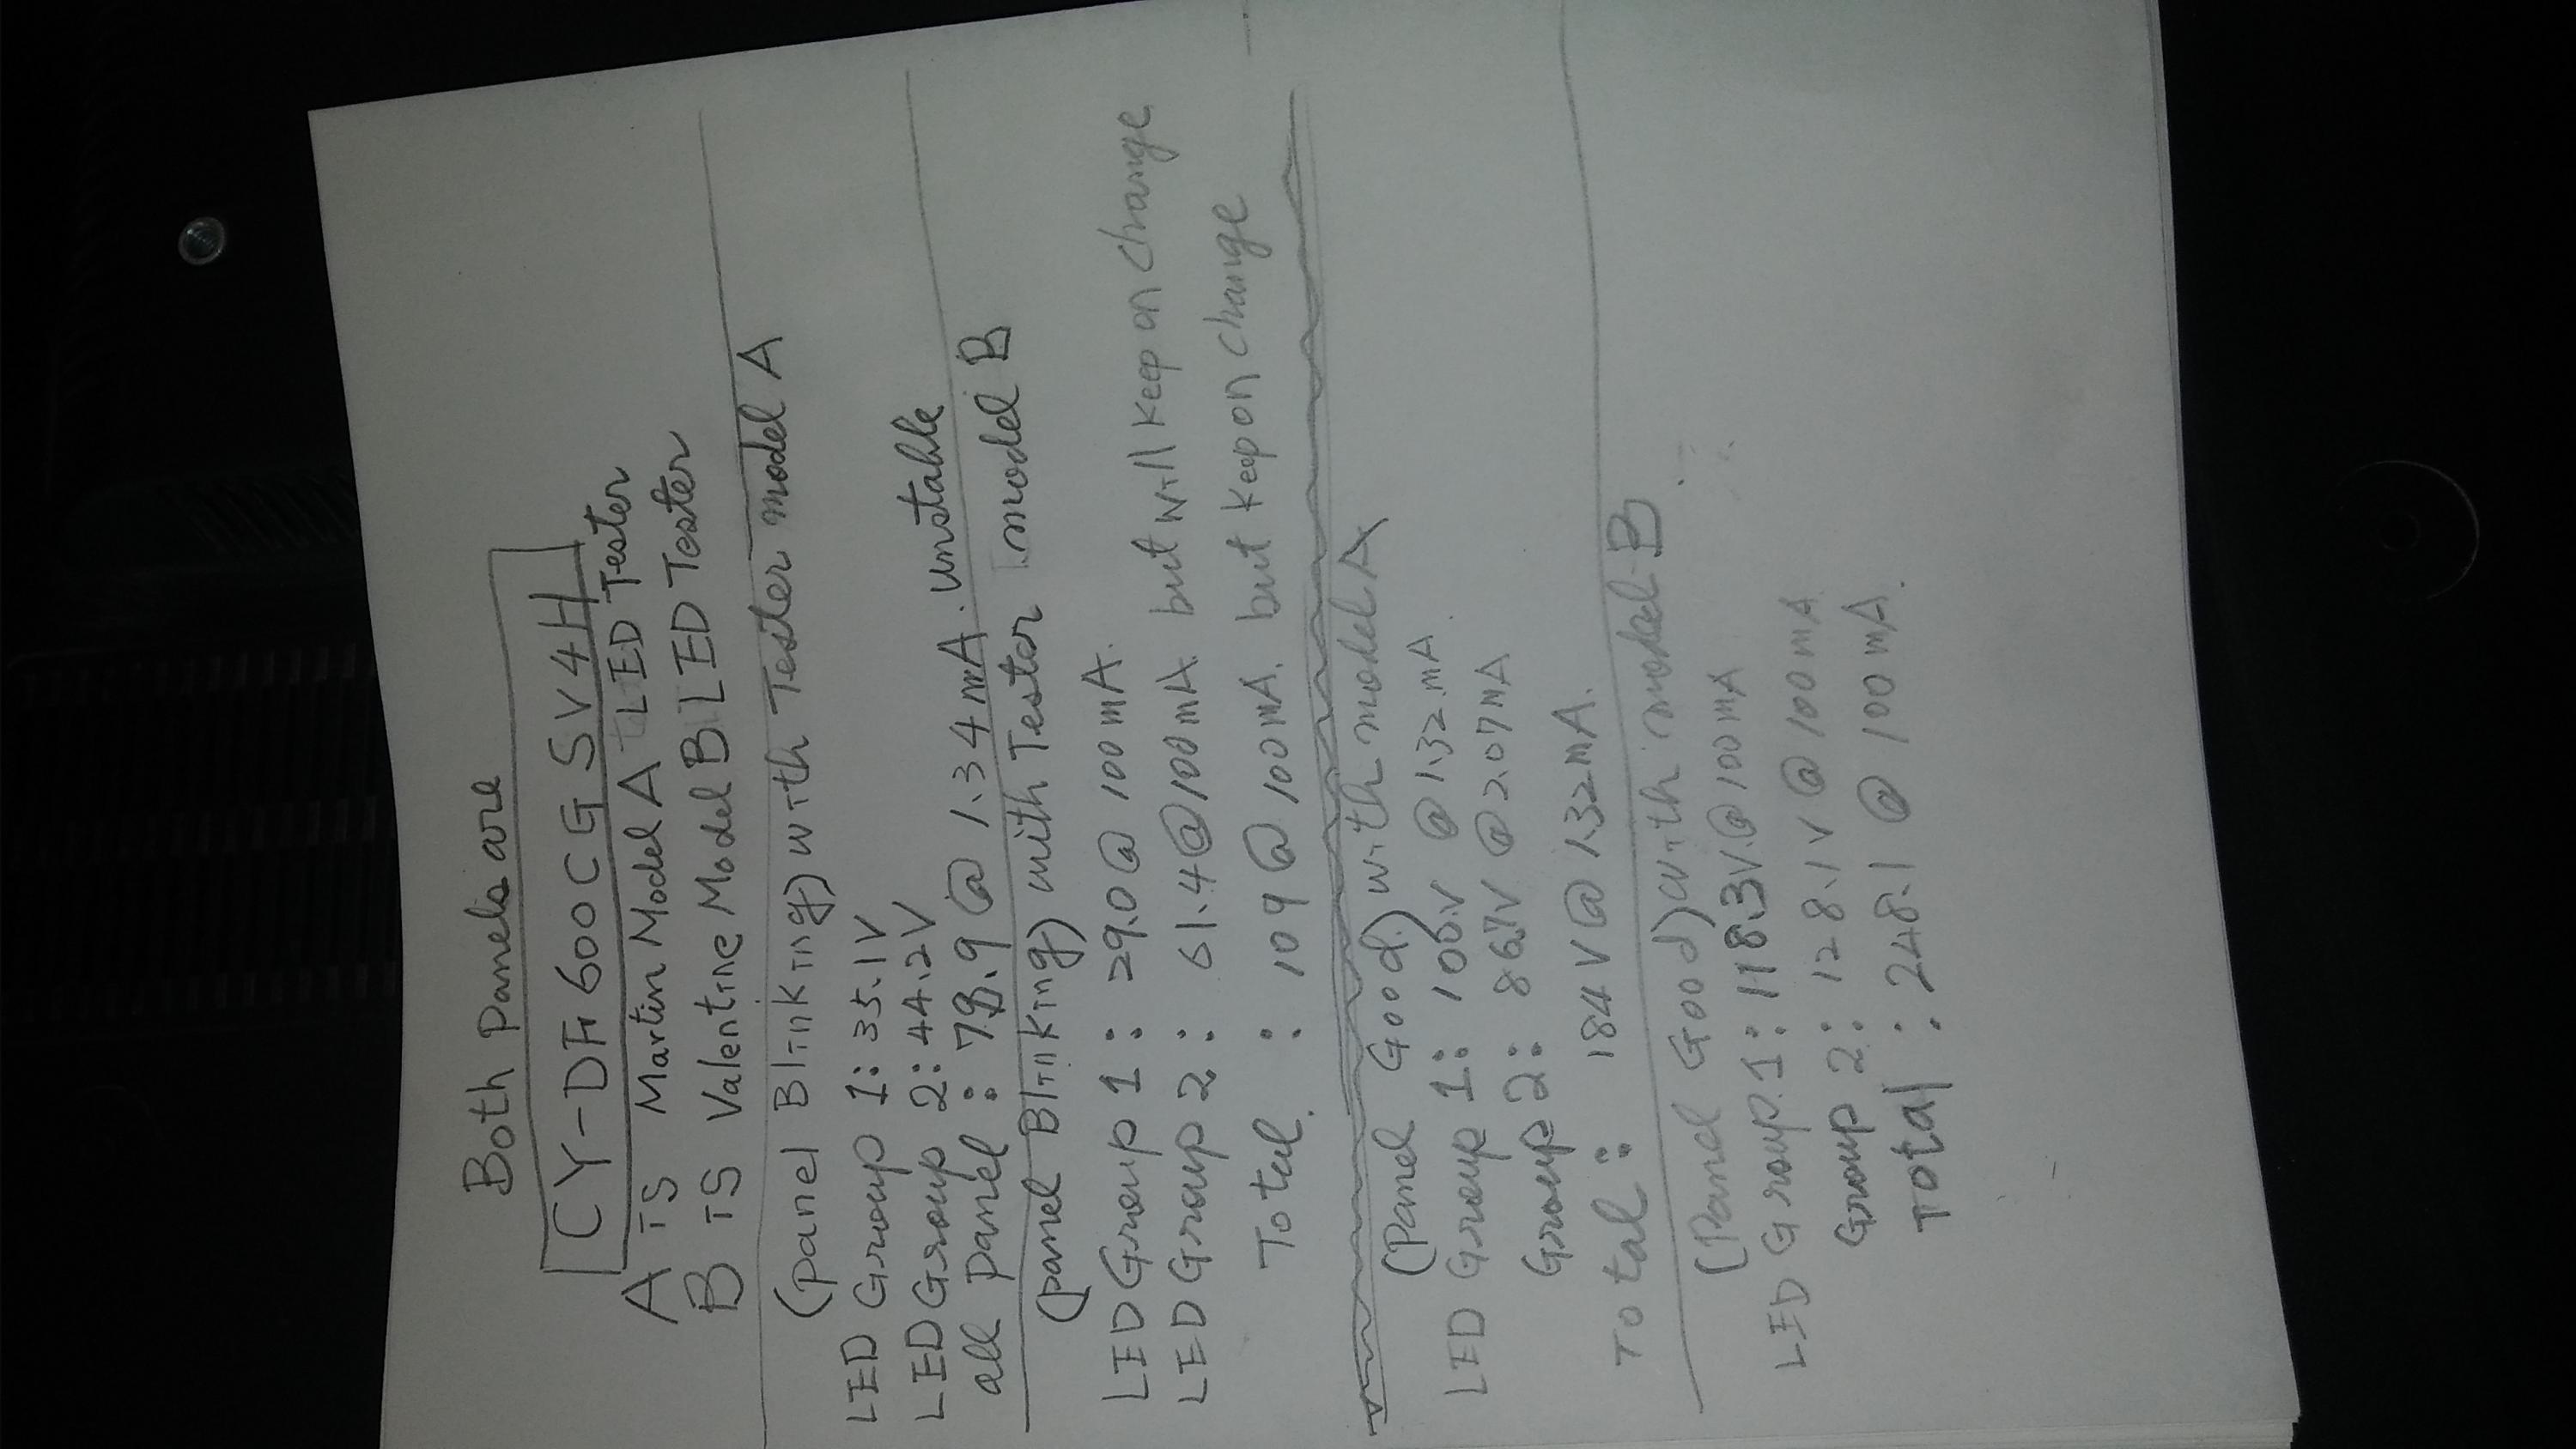 Both Panels are
CY-DF600CGSV4H
A is Martin Model A LED Tester
B is Valentine Model B LED Tester
(panel Blinking) with Tester model A
LED Group 1: 35.1V
LED Group 2: 44.2V
all panel : 78.9 @ 1.34 mA. unstable
(panel Blinking) with Tester model B
LED Group 1: 29.0 @ 100 mA.
LED Group 2: 61.4 @ 100 mA. but will keep on change
Total : 109 @ 100 mA. but keep on change
(Panel Good) with model A
LED Group 1: 100.V @ 1.32 mA.
Group 2: 86.7V @ 2.07 mA
Total: 184 V @ 1.32 mA.
(Panel Good) with model B
LED Group.1: 118.3V. @ 100 mA
Group 2: 128.1 V @ 100 mA
Total : 248.1 @ 100 mA.